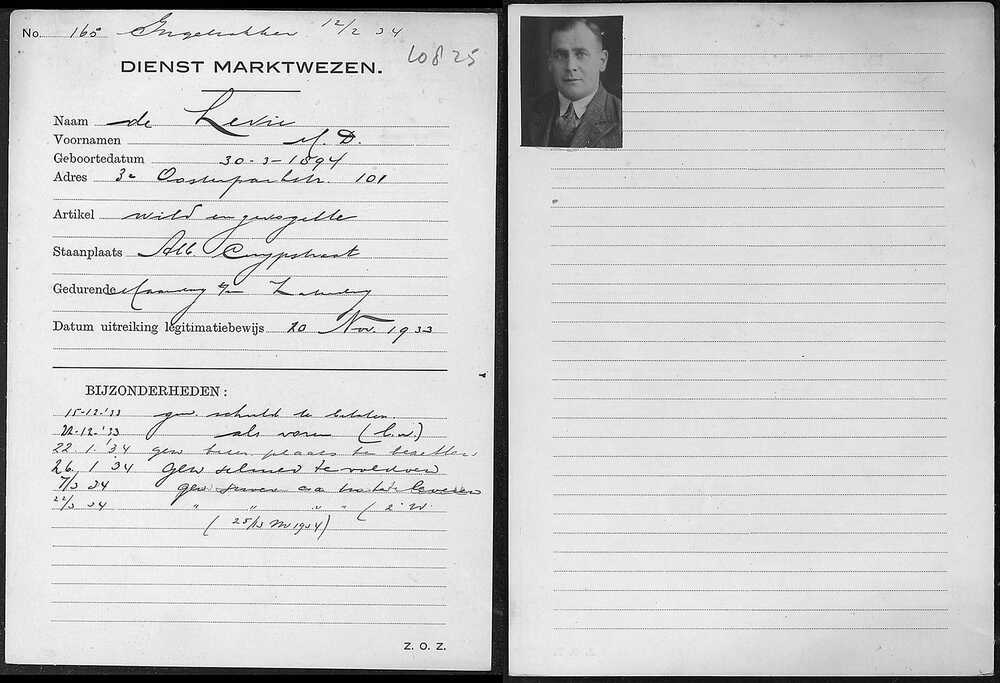 No. 165 Ingetrokken 12/2 34
10825
DIENST MARKTWEZEN.
Naam de Levie
Voornamen M. D.
Geboortedatum 30-3-1894
Adres 3e Oosterparkstr. 101
Artikel wild en gevogelte
Staanplaats Alb. Cuypstraat
Gedurende Maandag t/m Zaterdag
Datum uitreiking legitimatiebewijs 20 Nov. 1933
BIJZONDERHEDEN:
15-12-'33 gew. schuld te betalen.
22-12-'33 als voren
22.1.'34 gew. plaats te bezetten
26.1 34 gew te voldoen
7/3 34 gew
22/3 34 " " " "
(25/3 1934)
Z. O. Z.